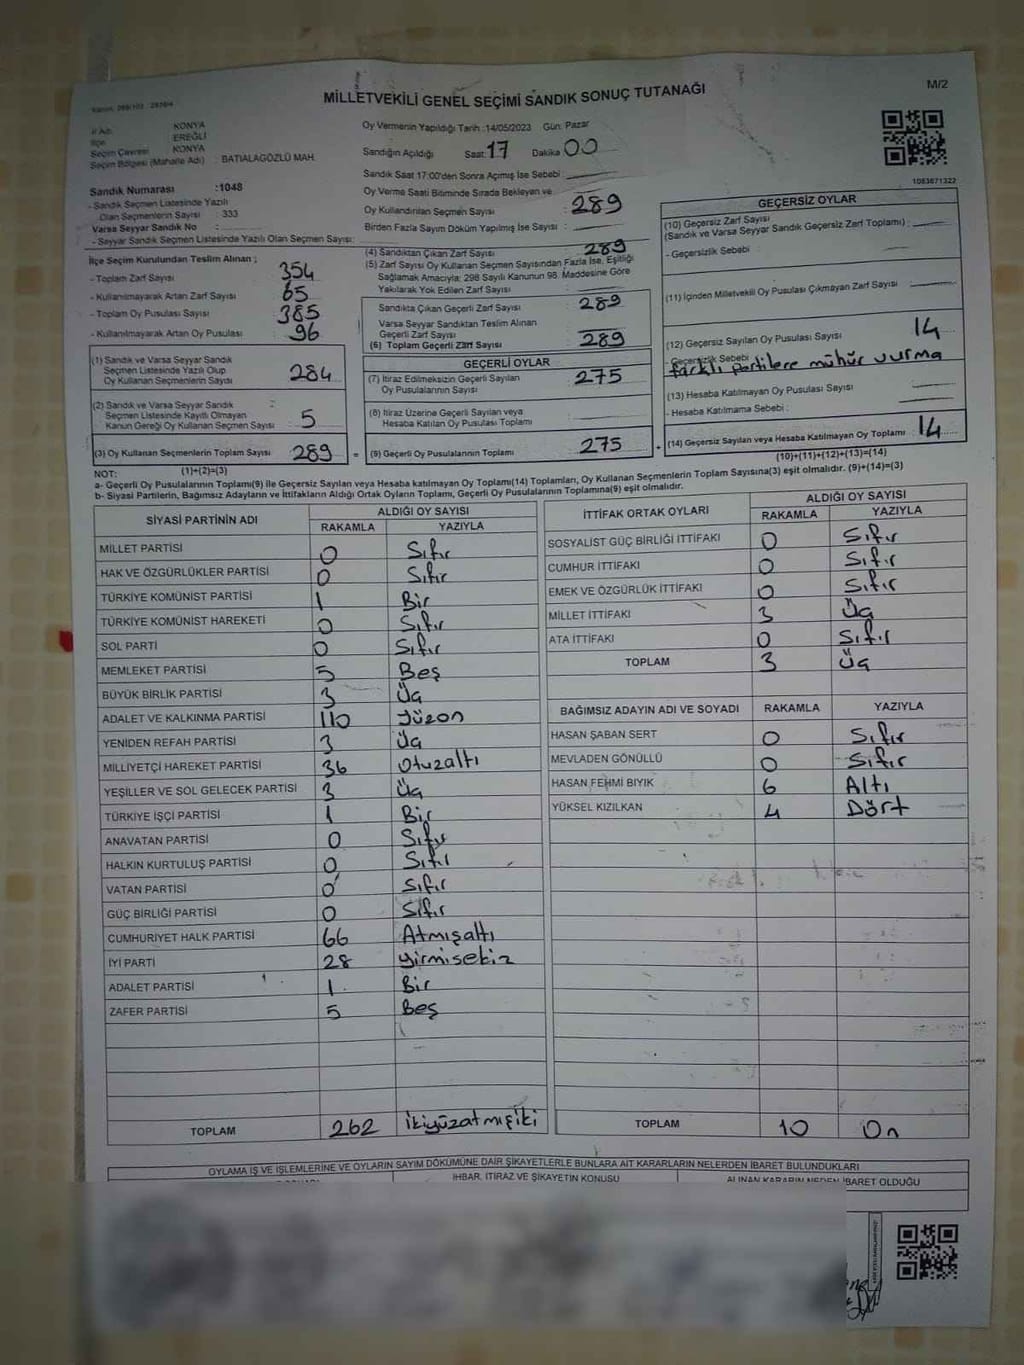 MİLLETVEKİLİ GENEL SEÇİMİ SANDIK SONUÇ TUTANAĞI
M/2
İl Adı KONYA
İlçe EREĞLİ
Seçim Çevresi KONYA
Seçim Bölgesi (Mahalle Adı) : BATIALAGÖZLÜ MAH.
Sandık Numarası :1048
- Sandık Seçmen Listesinde Yazılı
Olan Seçmenlerin Sayısı : 333
Varsa Seyyar Sandık No :
- Seyyar Sandık Seçmen Listesinde Yazılı Olan Seçmen Sayısı:
Oy Vermenin Yapıldığı Tarih :14/05/2023 Gün: Pazar
Sandığın Açıldığı Saat: 17 Dakika 00
Sandık Saat 17:00'den Sonra Açılmış İse Sebebi :
Oy Verme Saati Bitiminde Sırada Bekleyen ve
Oy Kullandırılan Seçmen Sayısı : 289
Birden Fazla Sayım Döküm Yapılmış İse Sayısı :
1083671322
İlçe Seçim Kurulundan Teslim Alınan ;
- Toplam Zarf Sayısı : 354
- Kullanılmayarak Artan Zarf Sayısı : 65
- Toplam Oy Pusulası Sayısı : 385
- Kullanılmayarak Artan Oy Pusulası : 96
(1) Sandık ve Varsa Seyyar Sandık
Seçmen Listesinde Yazılı Olup
Oy Kullanan Seçmenlerin Sayısı : 284
(2) Sandık ve Varsa Seyyar Sandık
Seçmen Listesinde Kayıtlı Olmayan
Kanun Gereği Oy Kullanan Seçmen Sayısı : 5
(3) Oy Kullanan Seçmenlerin Toplam Sayısı : 289
(1)+(2)=(3)
(4) Sandıktan Çıkan Zarf Sayısı : 289
(5) Zarf Sayısı Oy Kullanan Seçmen Sayısından Fazla İse, Eşitliği
Sağlamak Amacıyla; 298 Sayılı Kanunun 98. Maddesine Göre
Yakılarak Yok Edilen Zarf Sayısı :
Sandıkta Çıkan Geçerli Zarf Sayısı : 289
Varsa Seyyar Sandıktan Teslim Alınan
Geçerli Zarf Sayısı :
(6) Toplam Geçerli Zarf Sayısı : 289
GEÇERLİ OYLAR
(7) İtiraz Edilmeksizin Geçerli Sayılan
Oy Pusulalarının Sayısı : 275
(8) İtiraz Üzerine Geçerli Sayılan veya
Hesaba Katılan Oy Pusulası Toplamı :
(9) Geçerli Oy Pusulalarının Toplamı : 275
GEÇERSİZ OYLAR
(10) Geçersiz Zarf Sayısı
(Sandık ve Varsa Seyyar Sandık Geçersiz Zarf Toplamı) :
- Geçersizlik Sebebi :
(11) İçinden Milletvekili Oy Pusulası Çıkmayan Zarf Sayısı :
(12) Geçersiz Sayılan Oy Pusulası Sayısı : 14
- Geçersizlik Sebebi : farklı partilere mühür vurma
(13) Hesaba Katılmayan Oy Pusulası Sayısı :
- Hesaba Katılmama Sebebi :
(14) Geçersiz Sayılan veya Hesaba Katılmayan Oy Toplamı : 14
(10)+(11)+(12)+(13)=(14)
NOT:
a- Geçerli Oy Pusulalarının Toplamı(9) ile Geçersiz Sayılan veya Hesaba katılmayan Oy Toplamı(14) Toplamları, Oy Kullanan Seçmenlerin Toplam Sayısına(3) eşit olmalıdır. (9)+(14)=(3)
b- Siyasi Partilerin, Bağımsız Adayların ve İttifakların Aldığı Ortak Oyların Toplamı, Geçerli Oy Pusulalarının Toplamına(9) eşit olmalıdır.
SİYASİ PARTİNİN ADI ALDIĞI OY SAYISI
RAKAMLA YAZIYLA
MİLLET PARTİSİ 0 Sıfır
HAK VE ÖZGÜRLÜKLER PARTİSİ 0 Sıfır
TÜRKİYE KOMÜNİST PARTİSİ 1 Bir
TÜRKİYE KOMÜNİST HAREKETİ 0 Sıfır
SOL PARTİ 0 Sıfır
MEMLEKET PARTİSİ 5 Beş
BÜYÜK BİRLİK PARTİSİ 3 Üç
ADALET VE KALKINMA PARTİSİ 110 Yüzon
YENİDEN REFAH PARTİSİ 3 Üç
MİLLİYETÇİ HAREKET PARTİSİ 36 Otuzaltı
YEŞİLLER VE SOL GELECEK PARTİSİ 3 Üç
TÜRKİYE İŞÇİ PARTİSİ 1 Bir
ANAVATAN PARTİSİ 0 Sıfır
HALKIN KURTULUŞ PARTİSİ 0 Sıfır
VATAN PARTİSİ 0 Sıfır
GÜÇ BİRLİĞİ PARTİSİ 0 Sıfır
CUMHURİYET HALK PARTİSİ 66 Atmışaltı
İYİ PARTİ 28 yirmisekiz
ADALET PARTİSİ 1 Bir
ZAFER PARTİSİ 5 Beş
TOPLAM 262 ikiyüzatmışiki
İTTİFAK ORTAK OYLARI ALDIĞI OY SAYISI
RAKAMLA YAZIYLA
SOSYALİST GÜÇ BİRLİĞİ İTTİFAKI 0 Sıfır
CUMHUR İTTİFAKI 0 Sıfır
EMEK VE ÖZGÜRLÜK İTTİFAKI 0 Sıfır
MİLLET İTTİFAKI 3 Üç
ATA İTTİFAKI 0 Sıfır
TOPLAM 3 Üç
BAĞIMSIZ ADAYIN ADI VE SOYADI RAKAMLA YAZIYLA
HASAN ŞABAN SERT 0 Sıfır
MEVLADEN GÖNÜLLÜ 0 Sıfır
HASAN FEHMİ BIYIK 6 Altı
YÜKSEL KIZILKAN 4 Dört
TOPLAM 10 On
OYLAMA İŞ VE İŞLEMLERİNE VE OYLARIN SAYIM DÖKÜMÜNE DAİR ŞİKAYETLERLE BUNLARA AİT KARARLARIN NELERDEN İBARET BULUNDUKLARI
İHBAR, İTİRAZ VE ŞİKAYETİN KONUSU
ALINAN KARARIN NEDEN İBARET OLDUĞU